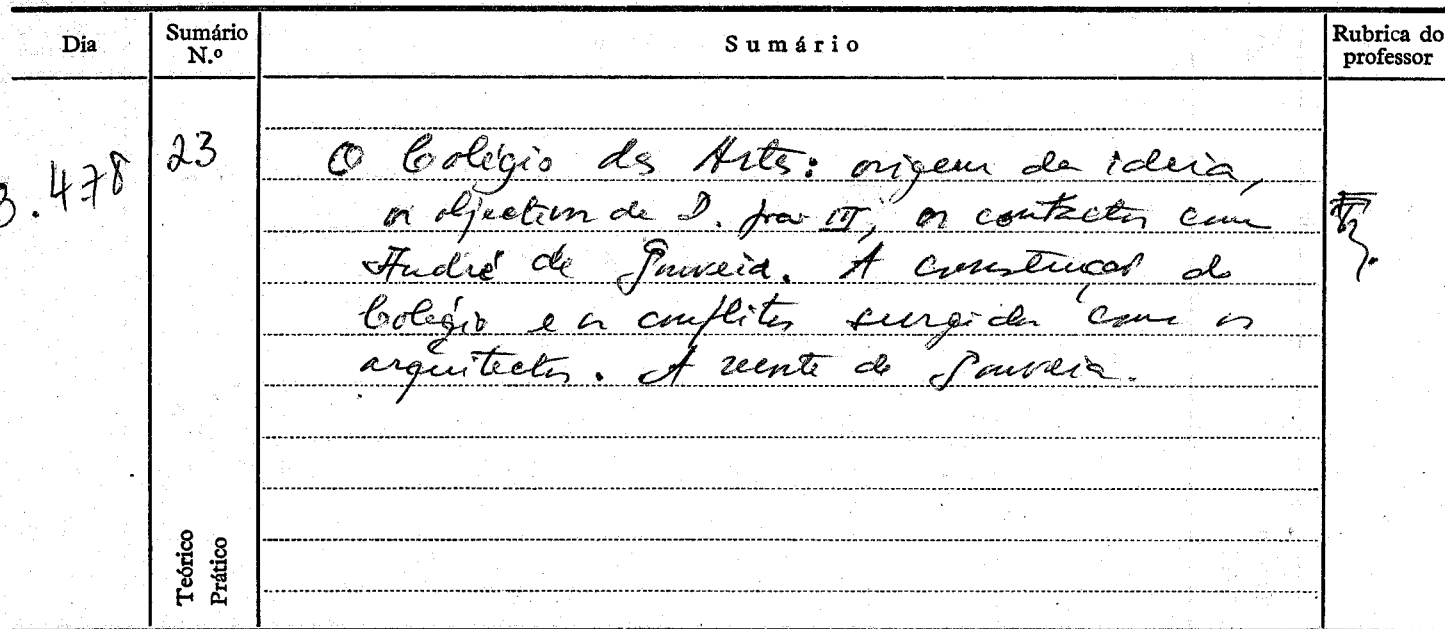 Dia
Sumário N.º
Sumário
Rubrica do professor
3.478
23
O Colégio das Artes: origem da ideia,
os objectivos de D. João III, os contactos com
André de Gouveia. A construção do
Colégio e os conflitos surgidos com os
arquitectos. A de Gouveia.
Teórico
Prático